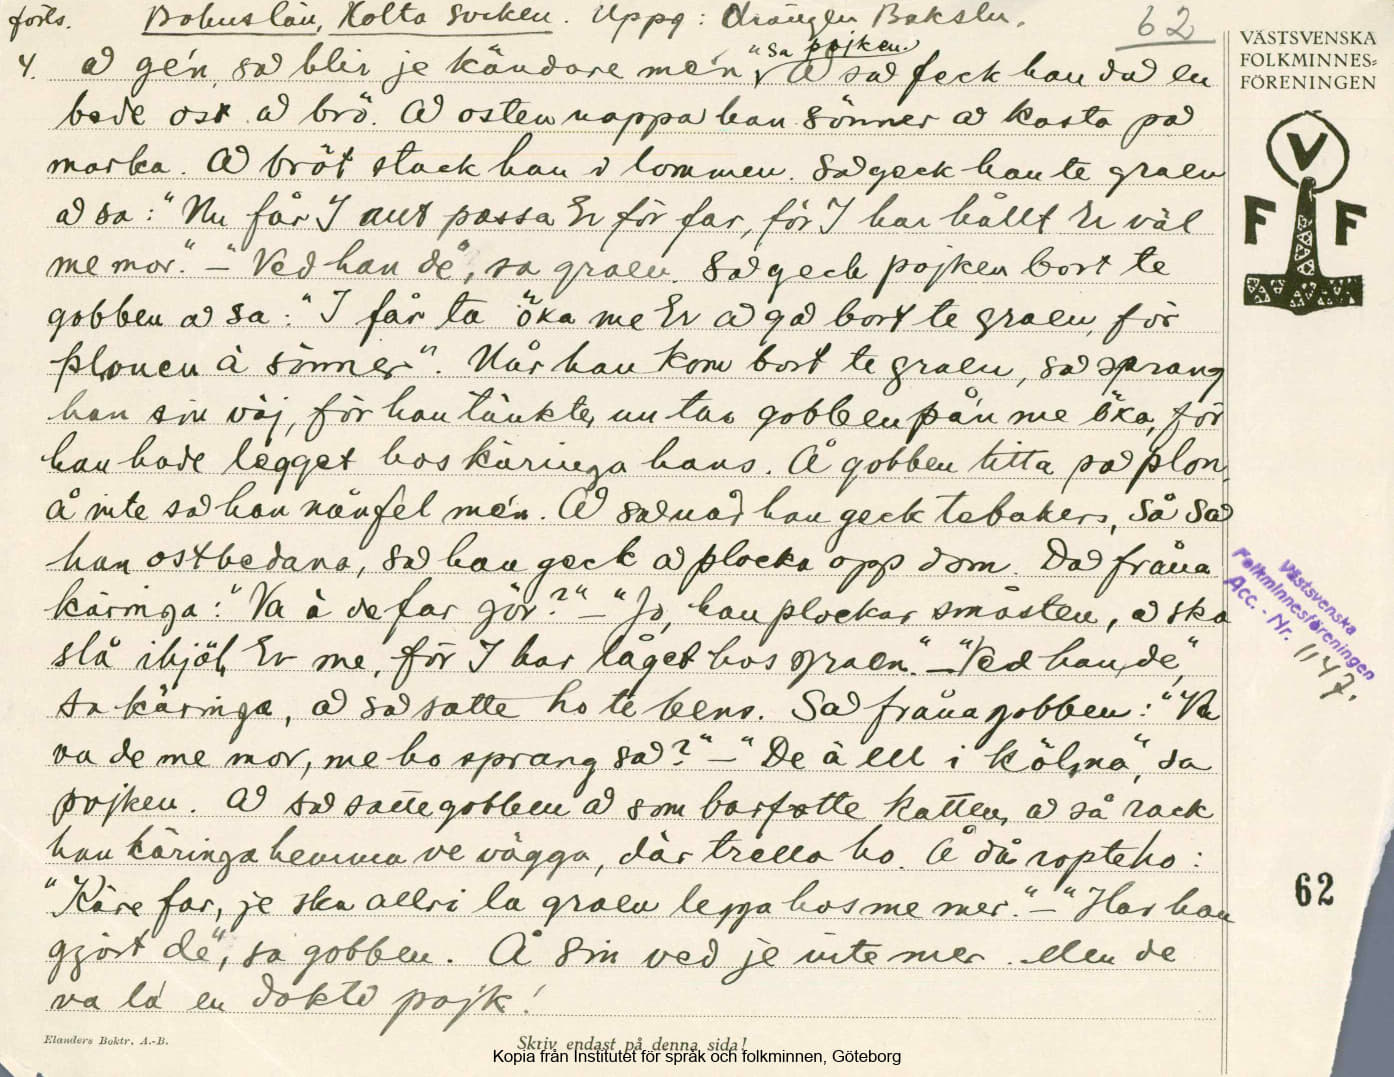 forts. Bohuslän, Holta socken. Uppg: drängen Bakslu. 62
4. å ge'n, så blir je kändare me'n", sa pojken. Å så feck han då en
bode ost å brö. Å osten nappa han sönner å kasta på
marka. Å bröt stack han i lommen. Så geck han te graen
å sa: "Nu får I aut passa Er för far, för I har hållt Er väl
me mor." — "Ved han de", sa graen. Så geck pojken bort te
gobben å sa: "I får ta öka me Er å gå bort te graen, för
plouen ä sönner". Når han kom bort te graen, så sprang
han sin väj, för han tänkte, nu tar gobben på'n me öka, för
han hade legget hos käringa hans. Å gobben titta på plon,
å inte så han nån fel me'n. Å så når han geck tebakers, så så
han ostbedana, så han geck å plocka opp dom. Då fråua
käringa: "Va ä de far gör?" — "Jo, han plockar småsten, å ska
slå ihjäl Er me, för I har låget hos graen." — "Ved han, de",
sa käringa, å så satte ho te bens. Så fråua gobben: "Va
va de me mor, me ho sprang så?" — "De ä ell i kölna", sa
pojken. Å så satte gobben å som barfotte katten, å så rack
han käringa hemma ve vägga, där trella ho. Å då ropte ho:
"Käre far, je ska allri la graen legga hos me mer." — "Har han
gjört de", sa gobben. Å sin ved je inte mer. Men de
va la en doktå pojk!
VÄSTSVENSKA
FOLKMINNES=
FÖRENINGEN
V
F F
Västsvenska
Folkminnesföreningen
Acc. - Nr. 1147.
62
Elanders Boktr. A.-B.
Skriv endast på denna sida!
Kopia från Institutet för språk och folkminnen, Göteborg